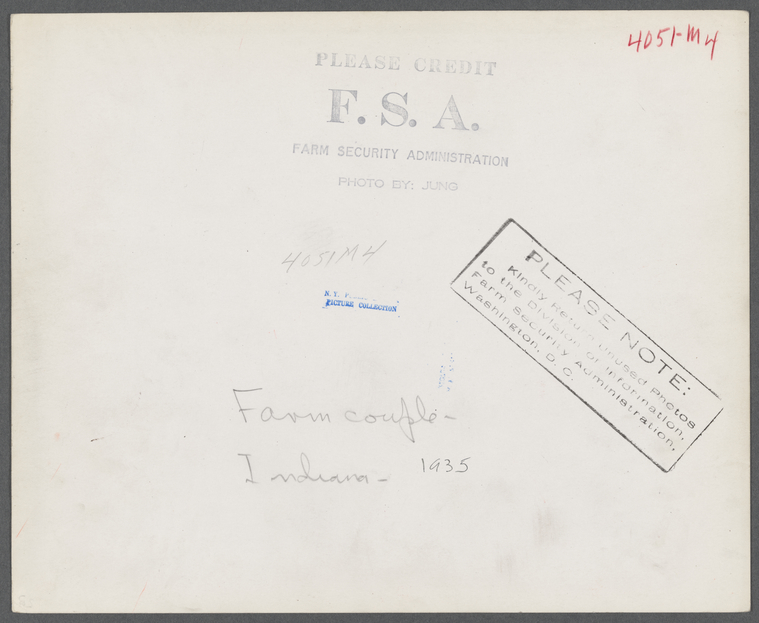 4051-M4
PLEASE CREDIT
F. S. A.
FARM SECURITY ADMINISTRATION
PHOTO BY: JUNG
4051M4
N. Y.
PICTURE COLLECTION
PLEASE NOTE:
Kindly Return Unused Photos
to the Division of Information,
Farm Security Administration,
Washington, D. C.
Farm couple-
Indiana- 1935